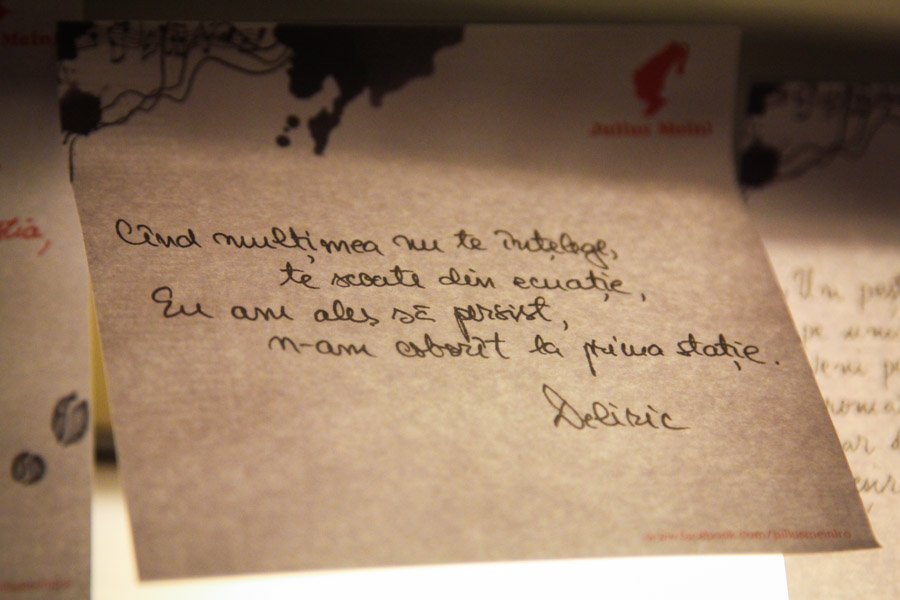 Julius Meinl
Când mulțimea nu te înțelege,
te scoate din ecuație,
Eu am ales să persist,
n-am coborît la prima stație.
Deliric
www.facebook.com/juliusmeinlro
stia,
Un
pe